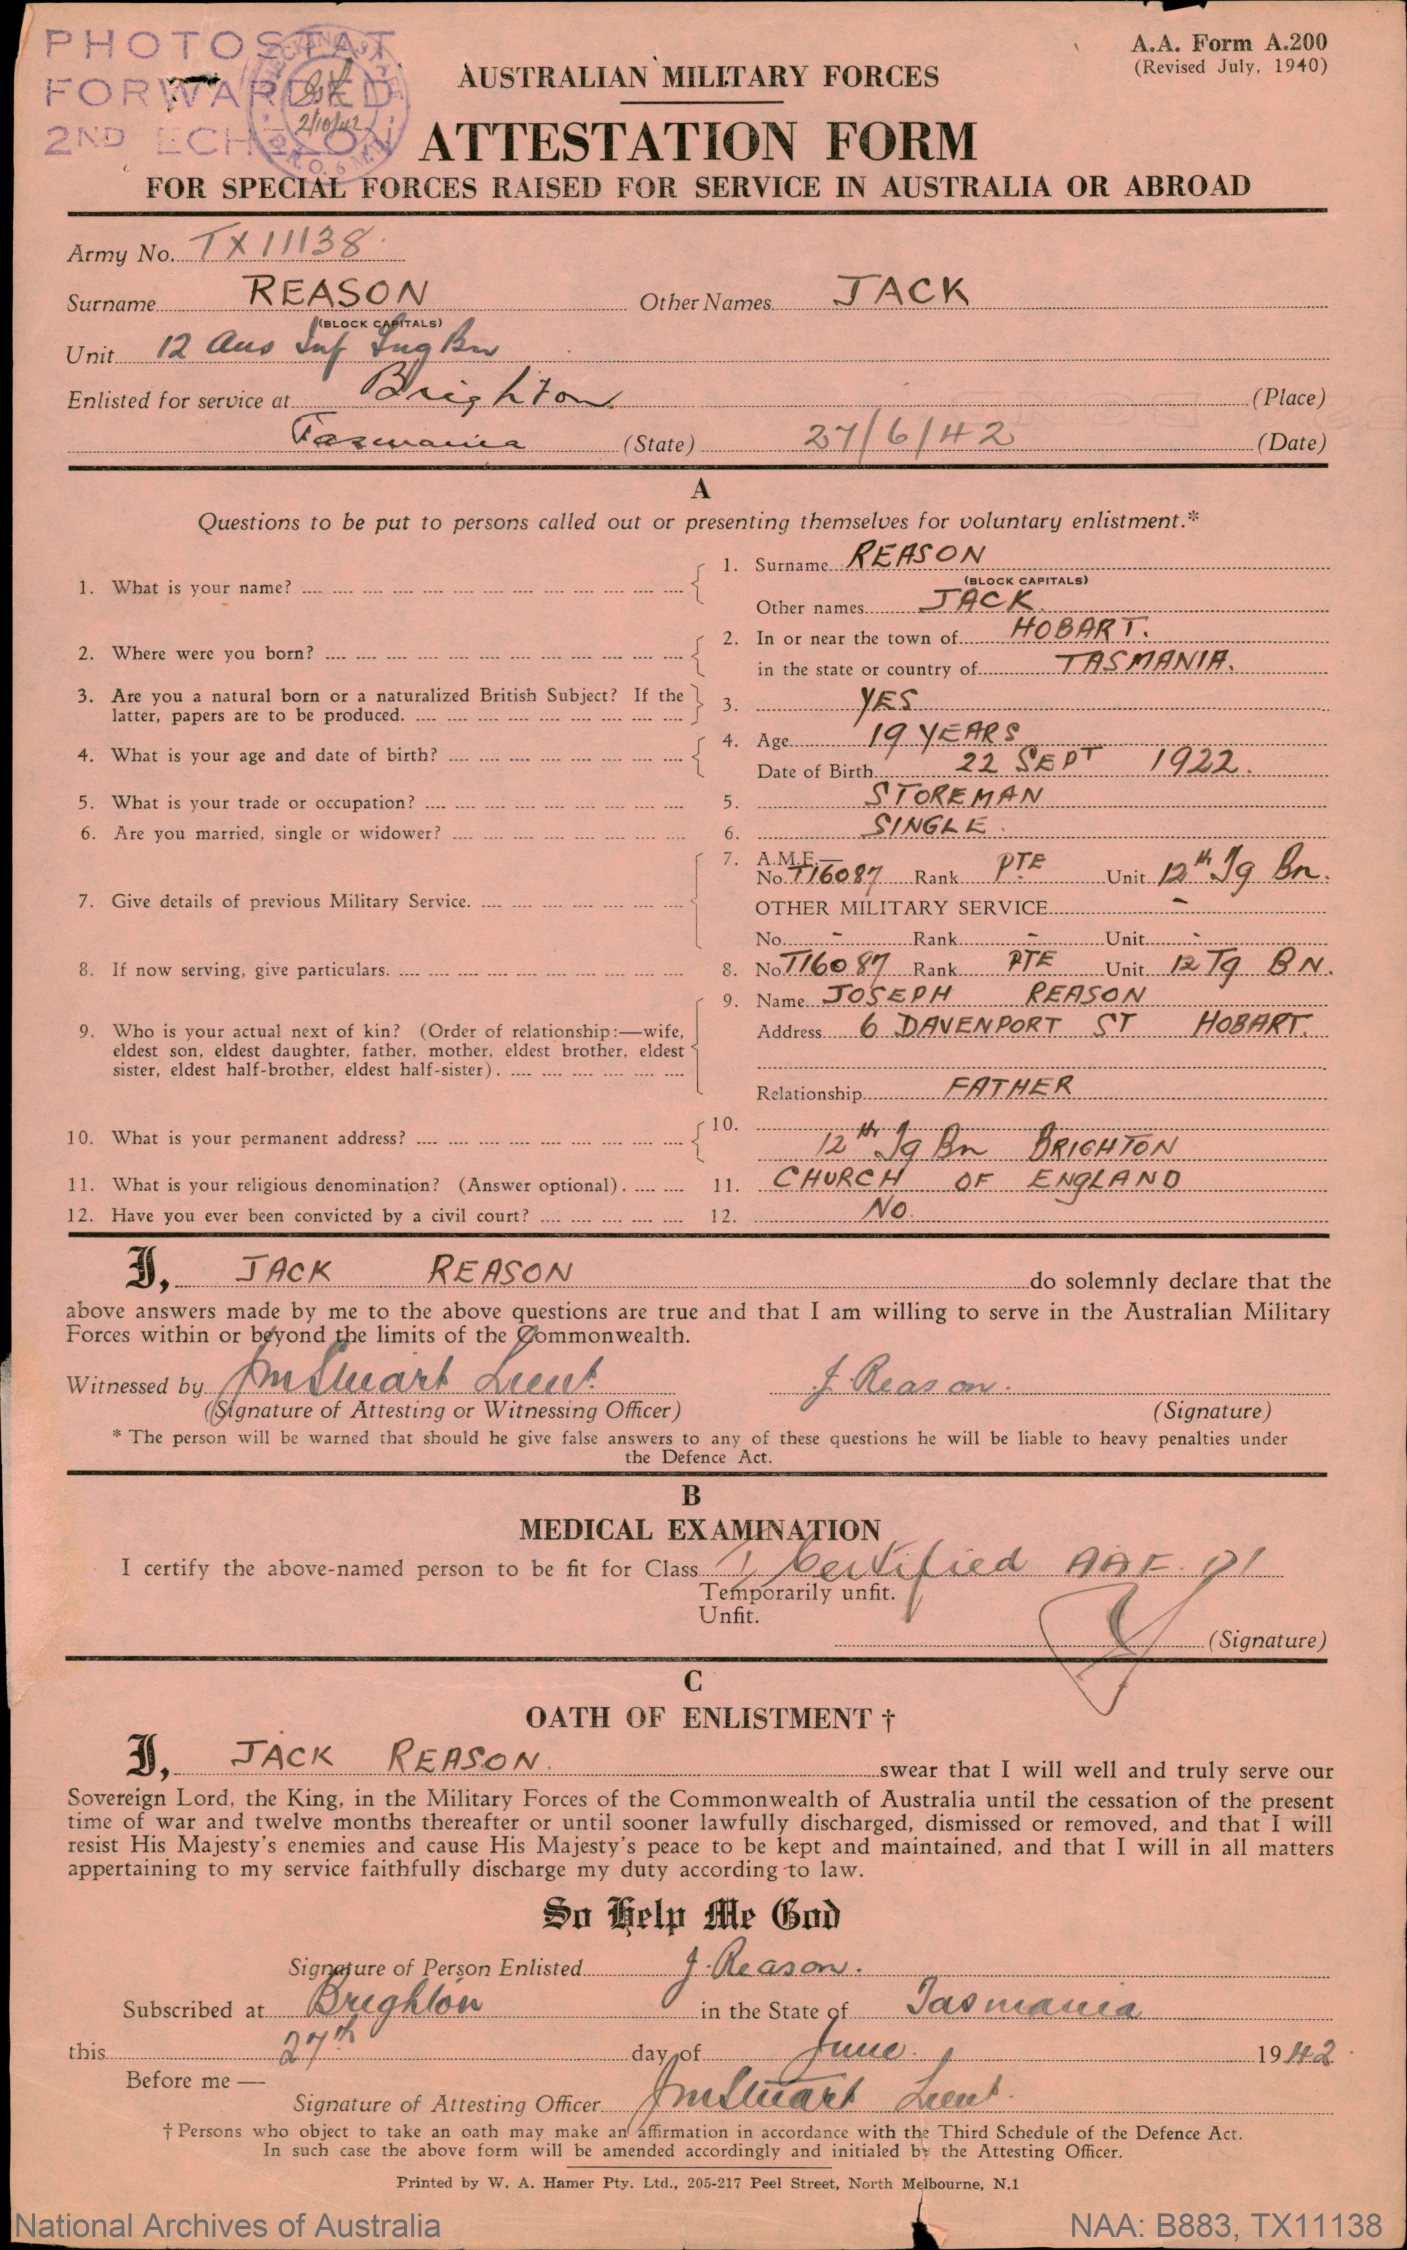 PHOTOSTAT
FORWARDED
2ND ECHELON
2/10/42
A.A. Form A.200
(Revised July, 1940)
AUSTRALIAN MILITARY FORCES
ATTESTATION FORM
FOR SPECIAL FORCES RAISED FOR SERVICE IN AUSTRALIA OR ABROAD
Army No. TX11138
Surname REASON Other Names JACK
(BLOCK CAPITALS)
Unit 12 Aus Inf Trng Bn
Enlisted for service at Brighton (Place)
Tasmania (State) 27/6/42 (Date)
A
Questions to be put to persons called out or presenting themselves for voluntary enlistment.*
1. What is your name?
1. Surname REASON
(BLOCK CAPITALS)
Other names JACK
2. Where were you born?
2. In or near the town of HOBART.
in the state or country of TASMANIA.
3. Are you a natural born or a naturalized British Subject? If the
latter, papers are to be produced.
3. YES
4. What is your age and date of birth?
4. Age 19 YEARS
Date of Birth 22 SEPT 1922.
5. What is your trade or occupation?
5. STOREMAN
6. Are you married, single or widower?
6. SINGLE.
7. Give details of previous Military Service.
7. A.M.F.—
No. T16087 Rank PTE Unit 12th Tg Bn.
OTHER MILITARY SERVICE -
No. - Rank - Unit -
8. If now serving, give particulars.
8. No T16087 Rank PTE Unit 12 Tg BN.
9. Who is your actual next of kin? (Order of relationship:—wife,
eldest son, eldest daughter, father, mother, eldest brother, eldest
sister, eldest half-brother, eldest half-sister).
9. Name JOSEPH REASON
Address 6 DAVENPORT ST HOBART.
Relationship FATHER
10. What is your permanent address?
10.
12th Tg Bn BRIGHTON
11. What is your religious denomination? (Answer optional).
11. CHURCH OF ENGLAND
12. Have you ever been convicted by a civil court?
12. NO.
I, JACK REASON do solemnly declare that the
above answers made by me to the above questions are true and that I am willing to serve in the Australian Military
Forces within or beyond the limits of the Commonwealth.
Witnessed by JM Stuart Lieut. J. Reason.
(Signature of Attesting or Witnessing Officer) (Signature)
* The person will be warned that should he give false answers to any of these questions he will be liable to heavy penalties under
the Defence Act.
B
MEDICAL EXAMINATION
I certify the above-named person to be fit for Class 1 Certified AAF.
Temporarily unfit.
Unfit.
(Signature)
C
OATH OF ENLISTMENT †
I, JACK REASON. swear that I will well and truly serve our
Sovereign Lord, the King, in the Military Forces of the Commonwealth of Australia until the cessation of the present
time of war and twelve months thereafter or until sooner lawfully discharged, dismissed or removed, and that I will
resist His Majesty's enemies and cause His Majesty's peace to be kept and maintained, and that I will in all matters
appertaining to my service faithfully discharge my duty according to law.
So Help Me God
Signature of Person Enlisted J. Reason.
Subscribed at Brighton in the State of Tasmania
this 27th day of June. 1942
Before me —
Signature of Attesting Officer JM Stuart Lieut.
† Persons who object to take an oath may make an affirmation in accordance with the Third Schedule of the Defence Act.
In such case the above form will be amended accordingly and initialed by the Attesting Officer.
Printed by W. A. Hamer Pty. Ltd., 205-217 Peel Street, North Melbourne, N.1
National Archives of Australia
NAA: B883, TX11138